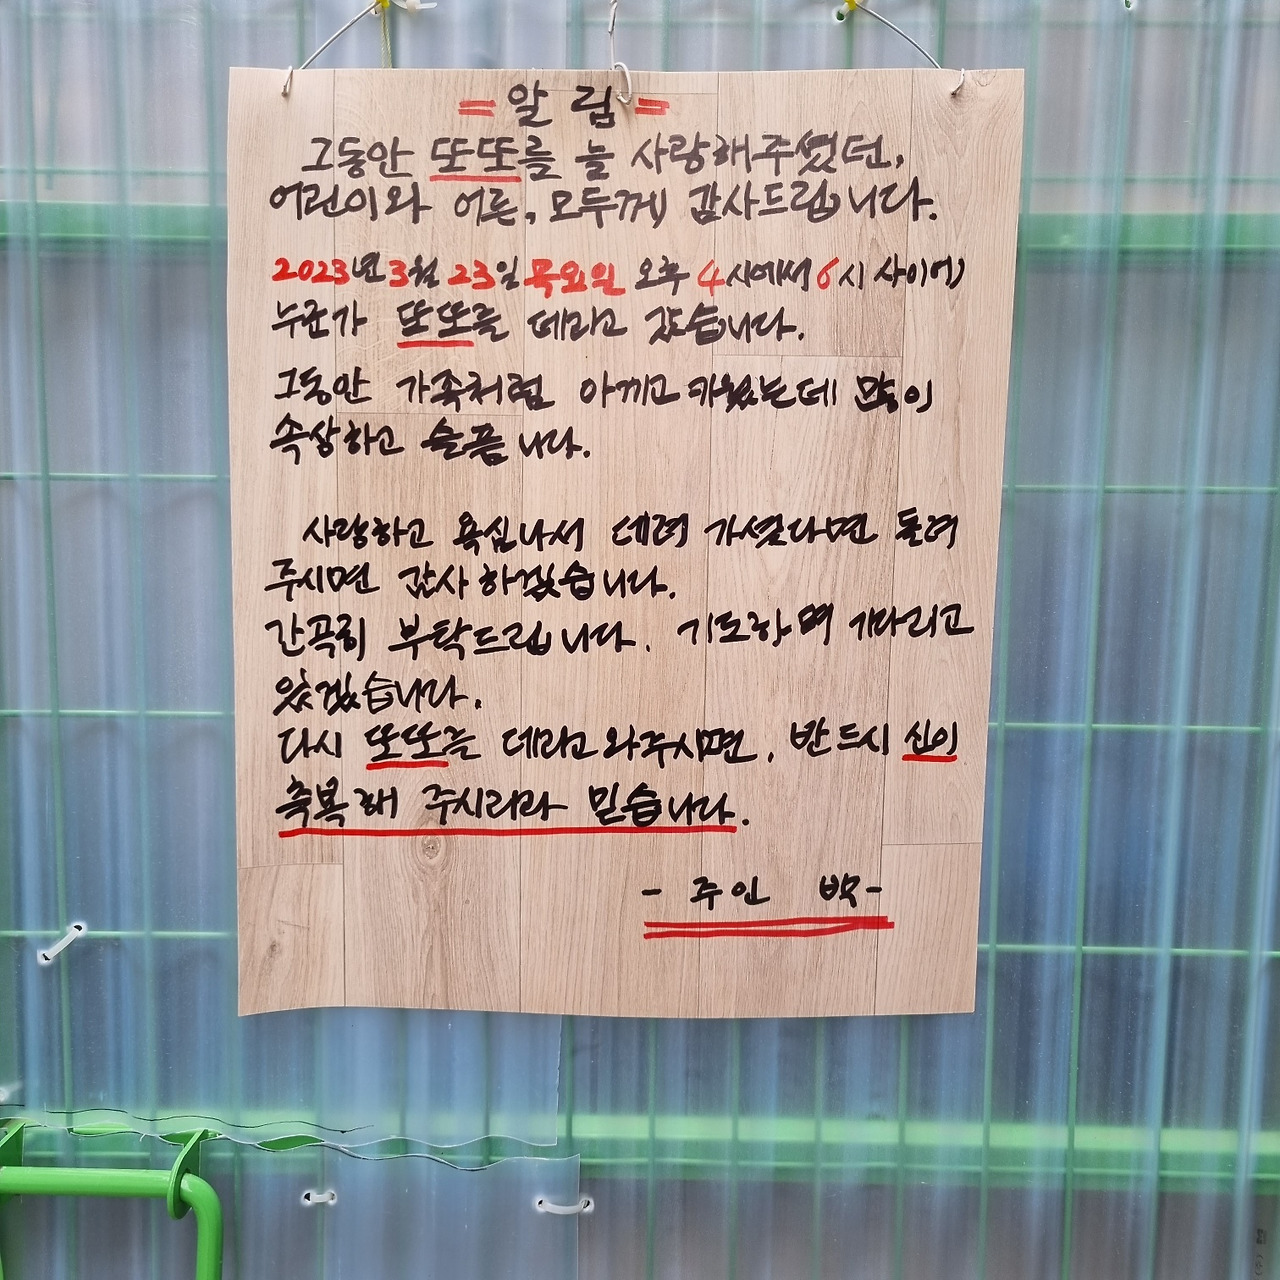 = 알 림 =
그동안 또또를 늘 사랑해주셨던,
어린이와 어른, 모두께 감사드립니다.
2023년 3월 23일 목요일 오후 4시에서 6시 사이에
누군가 또또를 데리고 갔습니다.
그동안 가족처럼 아끼고 키웠는데 많이
속상하고 슬픔니다.
사랑하고 욕심나서 데려 가셨다면 돌려
주시면 감사하겠습니다.
간곡히 부탁드립니다. 기도하며 기다리고
있겠습니다.
다시 또또를 데리고 와주시면, 반드시 신이
축복해 주시리라 믿습니다.
- 주인 백 -